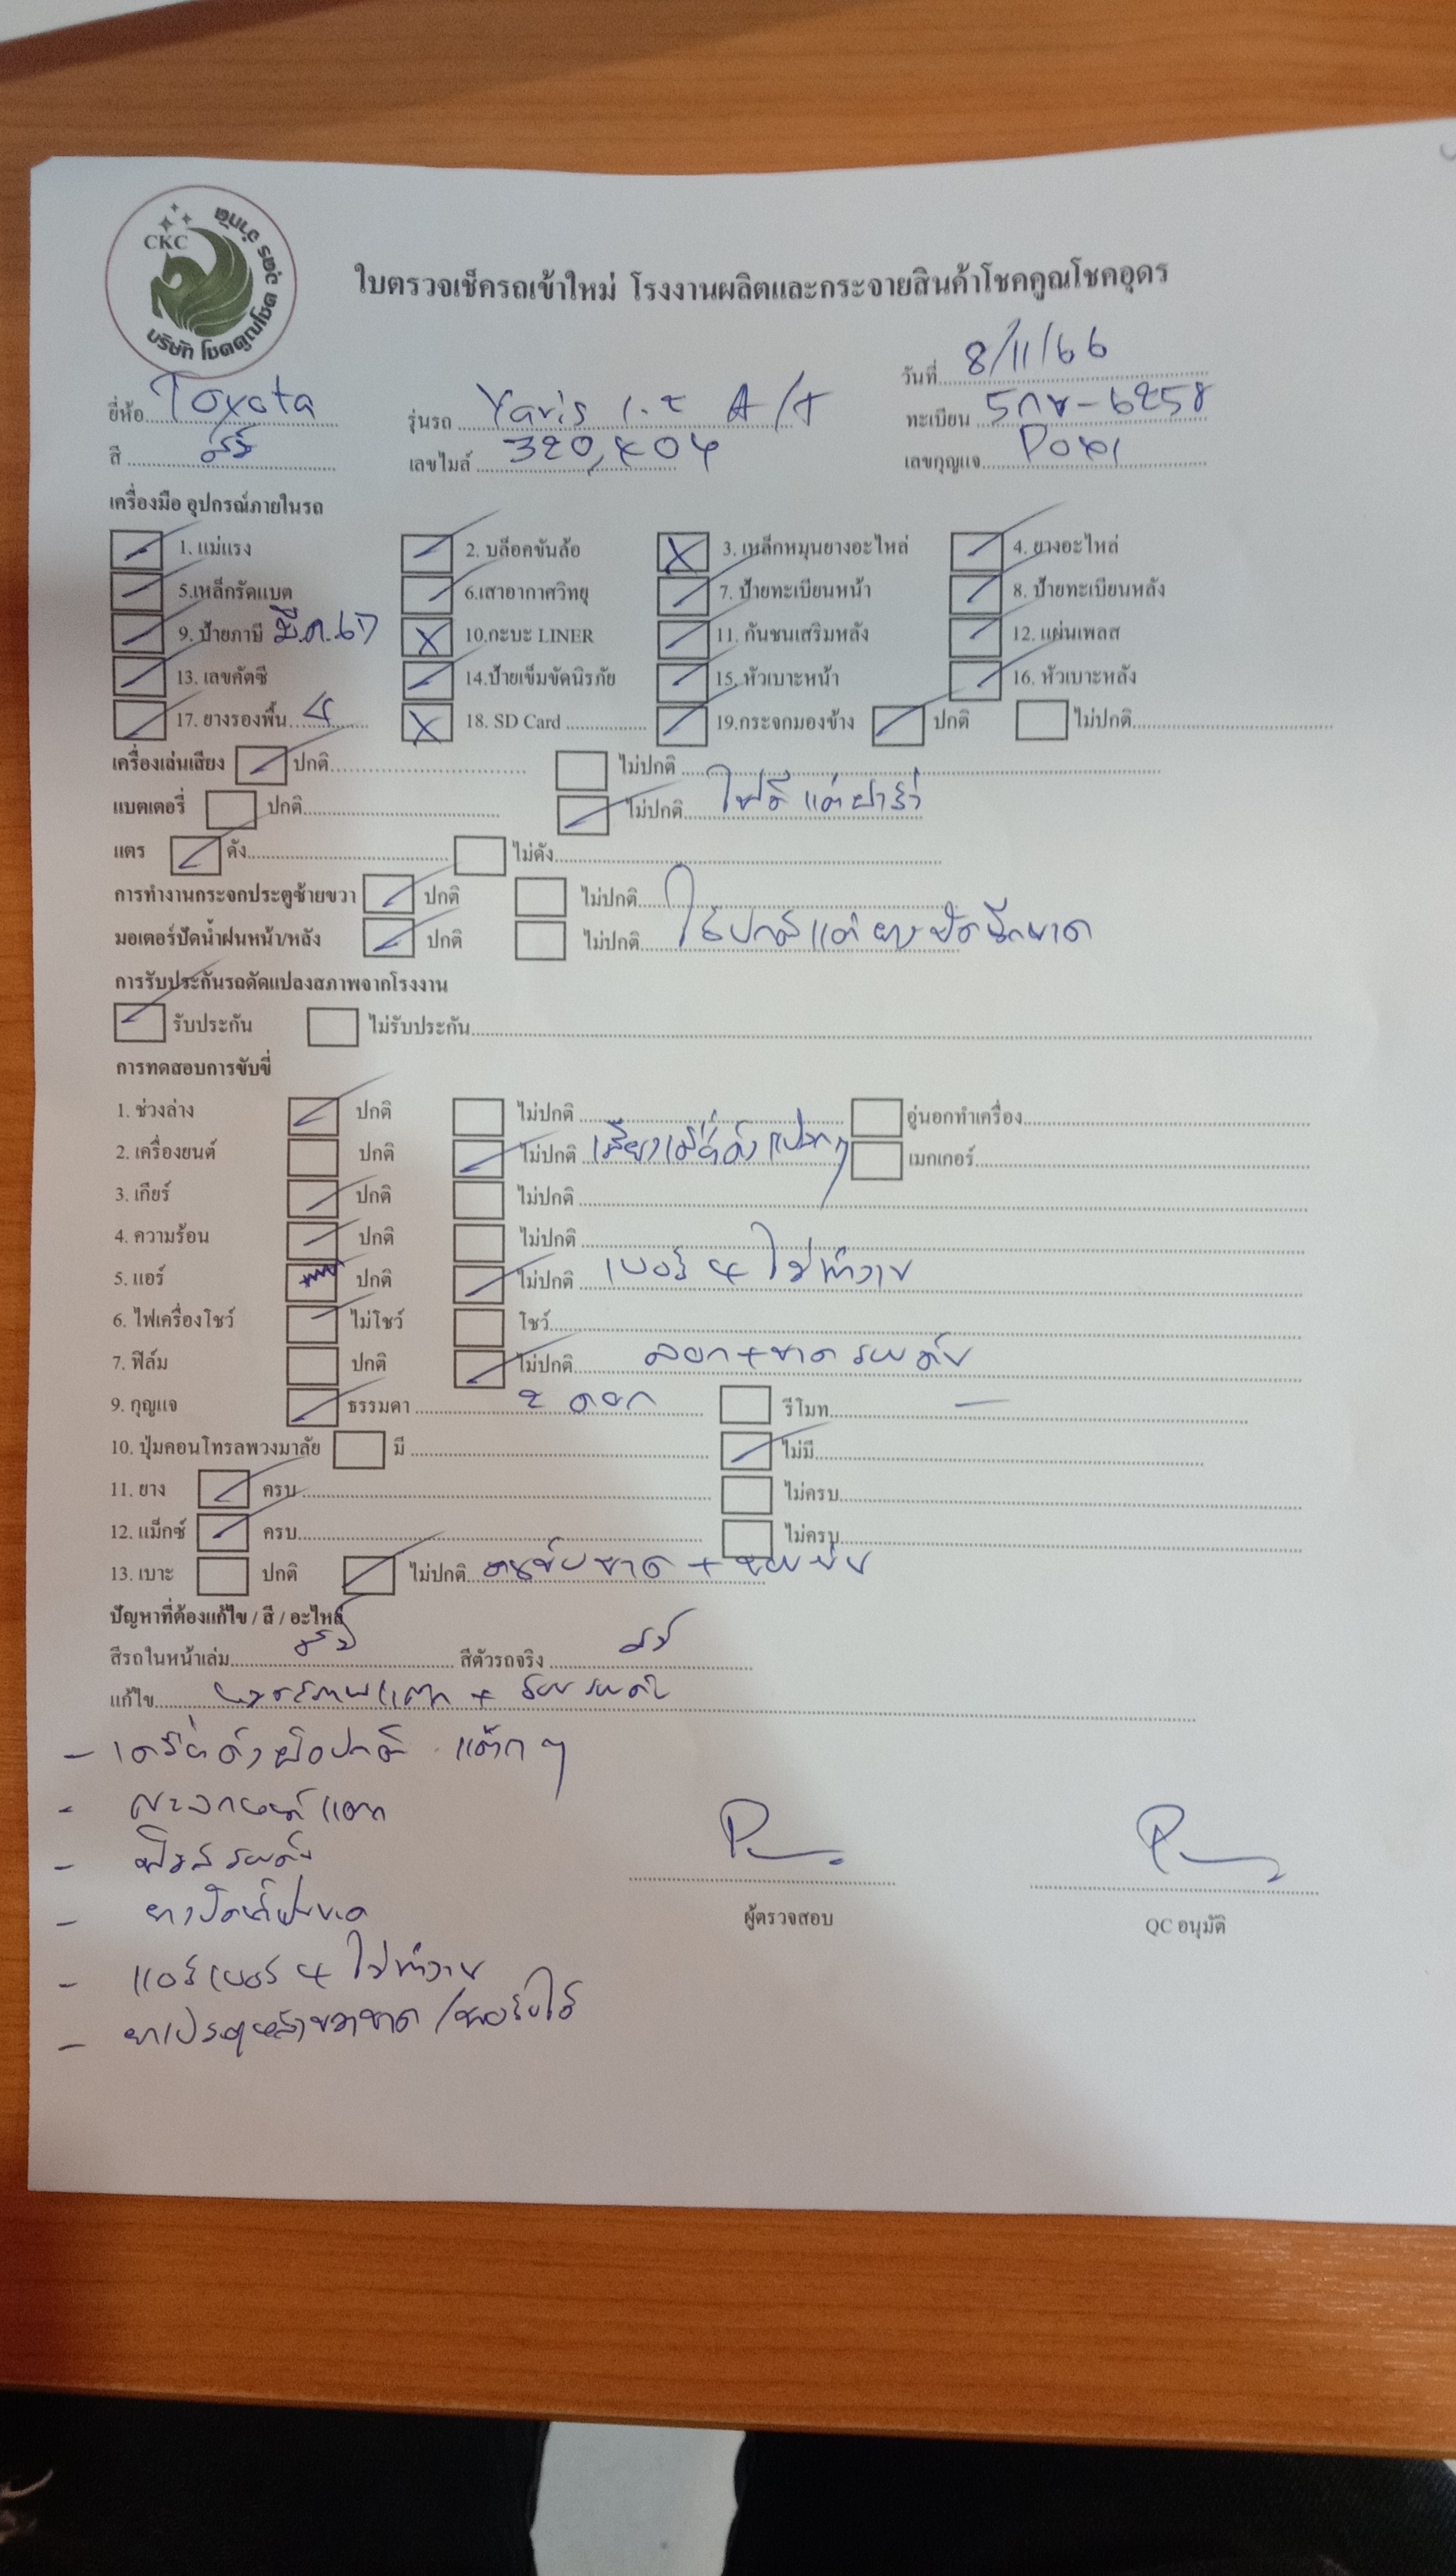 CKC
บริษัท โชคคูณโชค อุดร จำกัด
ใบตรวจเช็ครถเข้าใหม่ โรงงานผลิตและกระจายสินค้าโชคคูณโชคอุดร
วันที่ 8/11/66
ยี่ห้อ Toyota รุ่นรถ Yaris 1.2 A/T ทะเบียน 5กข-6258
สี เลขไมล์ 320,404 เลขกุญแจ
เครื่องมือ อุปกรณ์ภายในรถ
1. แม่แรง 2. บล็อคขันล้อ 3. เหล็กหมุนยางอะไหล่ 4. ยางอะไหล่
5.เหล็กรัดแบต 6.เสาอากาศวิทยุ 7. ป้ายทะเบียนหน้า 8. ป้ายทะเบียนหลัง
9. ป้ายภาษี มี.ค.67 10.กะบะ LINER 11. กันชนเสริมหลัง 12. แผ่นเพลส
13. เลขคัตซี 14.ป้ายเข็มขัดนิรภัย 15. หัวเบาะหน้า 16. หัวเบาะหลัง
17. ยางรองพื้น 4 18. SD Card 19.กระจกมองข้าง ปกติ ไม่ปกติ
เครื่องเล่นเสียง ปกติ ไม่ปกติ
แบตเตอรี่ ปกติ ไม่ปกติ ไฟดี แต่ฝารั่ว
แตร ดัง ไม่ดัง
การทำงานกระจกประตูซ้ายขวา ปกติ ไม่ปกติ
มอเตอร์ปัดน้ำฝนหน้า/หลัง ปกติ ไม่ปกติ ใช้ปกติแต่ยางปัดฉีกขาด
การรับประกันรถดัดแปลงสภาพจากโรงงาน
รับประกัน ไม่รับประกัน
การทดสอบการขับขี่
1. ช่วงล่าง ปกติ ไม่ปกติ อู่นอกทำเครื่อง
2. เครื่องยนต์ ปกติ ไม่ปกติ เมกเกอร์
3. เกียร์ ปกติ ไม่ปกติ
4. ความร้อน ปกติ ไม่ปกติ
5. แอร์ ปกติ ไม่ปกติ เบอร์ 4 ไม่ทำงาน
6. ไฟเครื่องโชว์ ไม่โชว์ โชว์
7. ฟิล์ม ปกติ ไม่ปกติ ลอก + ขาด รอบคัน
9. กุญแจ ธรรมดา 2 ดอก รีโมท -
10. ปุ่มคอนโทรลพวงมาลัย มี ไม่มี
11. ยาง ครบ ไม่ครบ
12. แม็กซ์ ครบ ไม่ครบ
13. เบาะ ปกติ ไม่ปกติ คนขับขาด +
ปัญหาที่ต้องแก้ไข / สี / อะไหล่
สีรถในหน้าเล่ม สีตัวรถจริง
แก้ไข แตก + รอบคัน
- ดังผิดปกติ แต๊กๆ
- แตก
- ฟิล์มรอบคัน
- ยางปัดน้ำฝนขาด
- แอร์เบอร์ 4 ไม่ทำงาน
- ยางประตูหลังขวาขาด /
ผู้ตรวจสอบ QC อนุมัติ